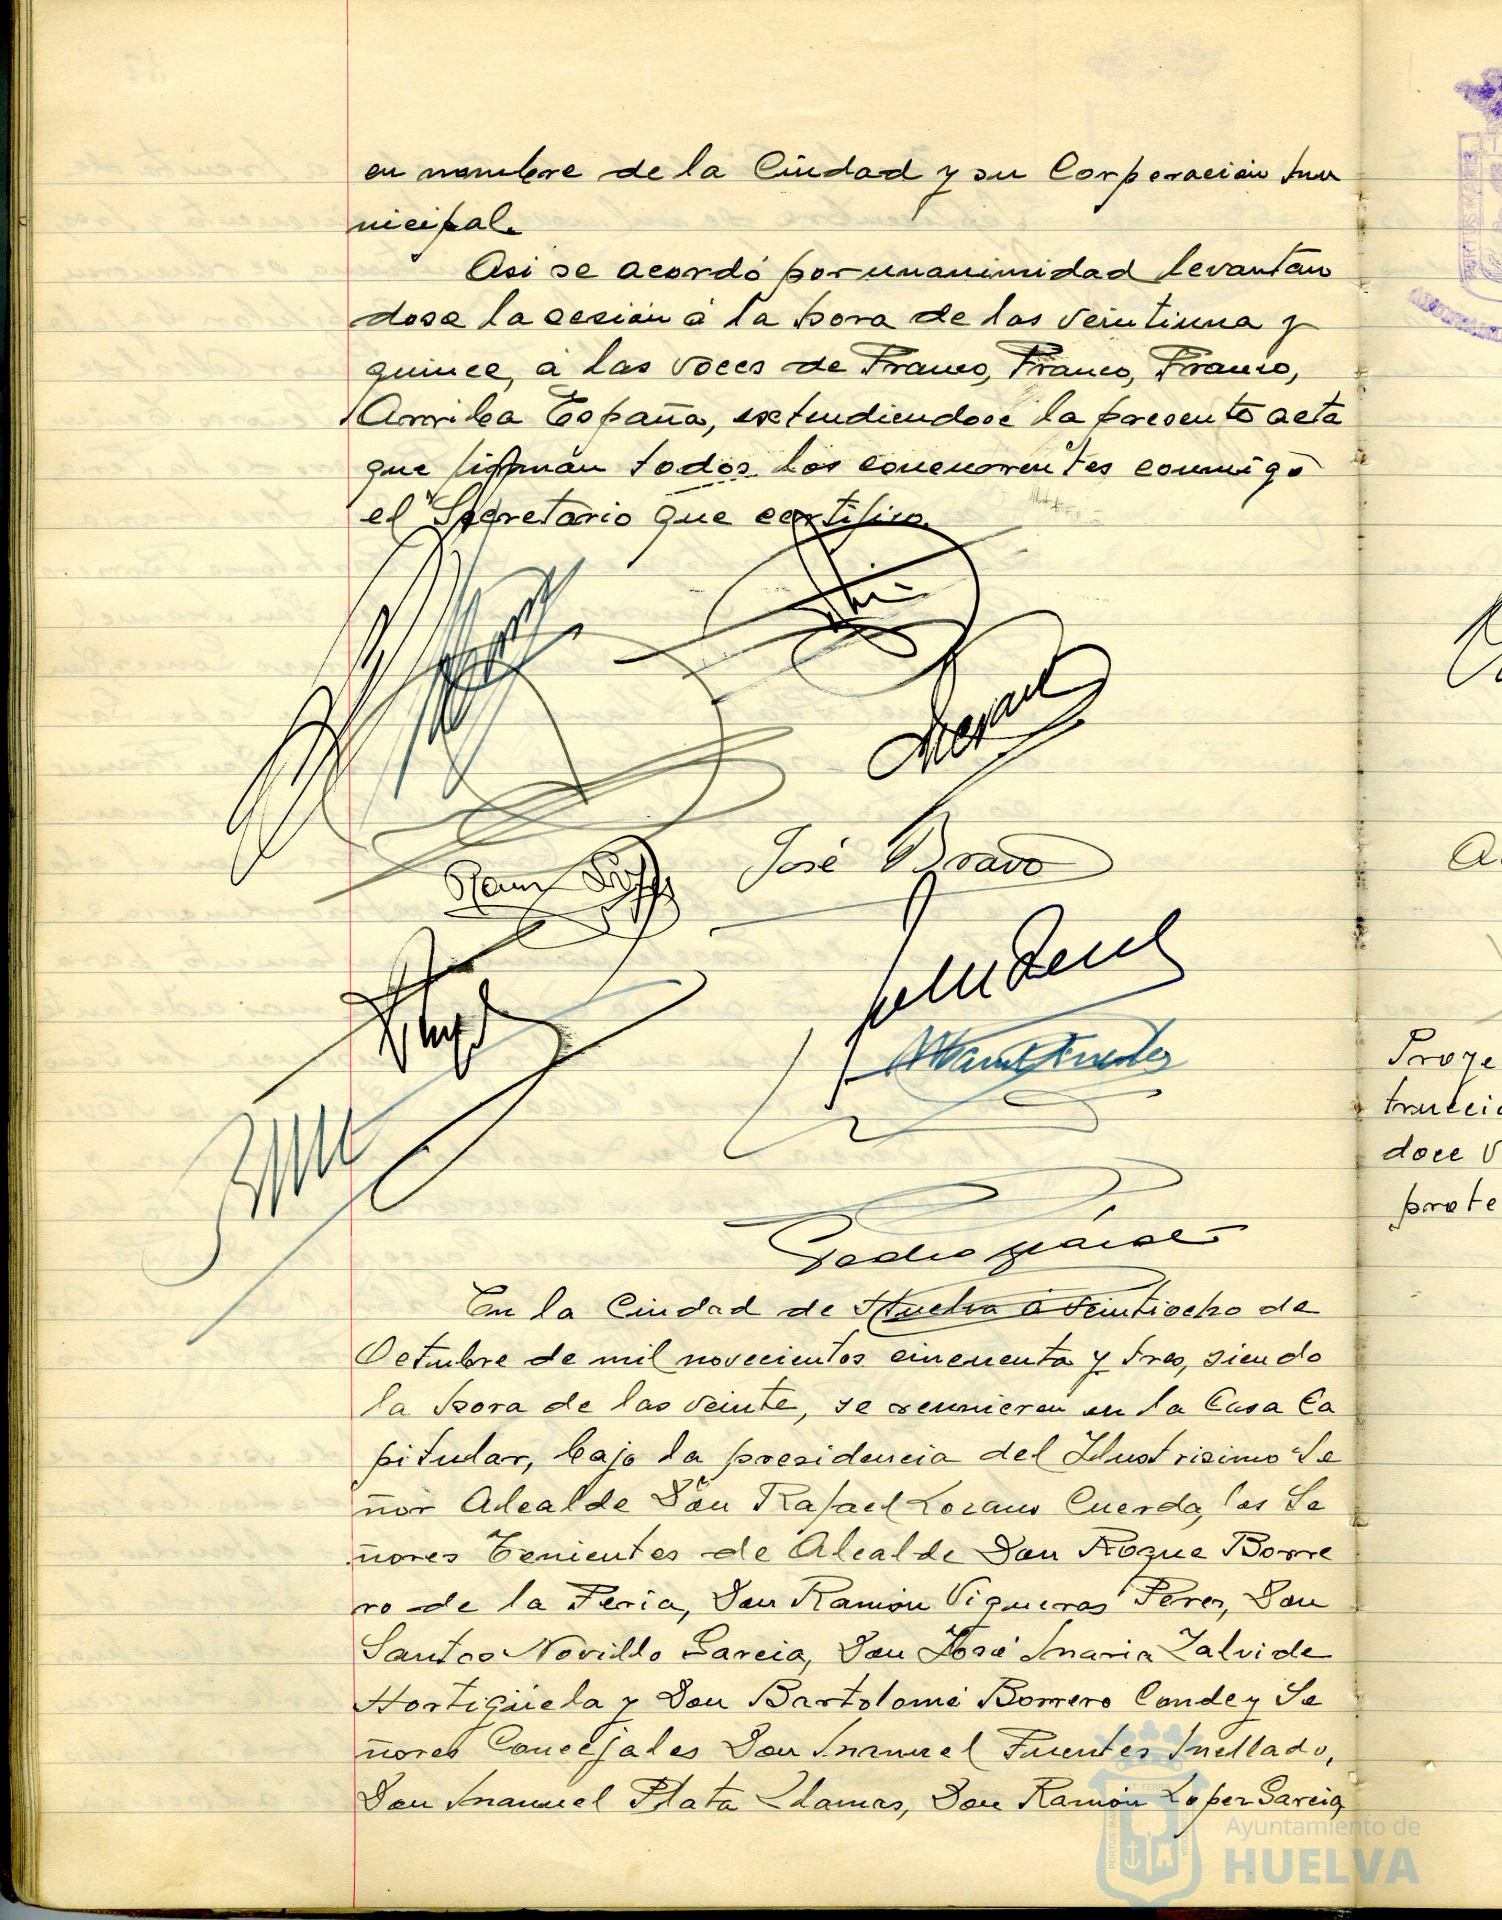 en nombre de la Ciudad y su Corporación Mu
nicipal.
Asi se acordó por unanimidad levantan
dose la sesión á la hora de las veintiuna y
quince, á las voces de Franco, Franco, Franco,
Arriba España, extendiendose la presente acta
que firman todos los concurrentes conmigo
el Secretario que certifico.
José Bravo
En la Ciudad de Huelva a veintiocho de
Octubre de mil novecientos cincuenta y tres, siendo
la hora de las veinte, se reunieron en la Casa Ca
pitular, bajo la presidencia del Ilustrisimo Se
ñor Alcalde Don Rafael Lozano Cuerda, los Se
ñores Tenientes de Alcalde Don Roque Borre
ro de la Feria, Don Ramón Vigueras Perez, Don
Santos Novillo Garcia, Don José Maria Zalvide
Hortigüela y Don Bartolomé Borrero Conde y Se
ñores Concejales Don Manuel Fuentes Mellado,
Don Manuel Plata Llamas, Don Ramón Lopez Garcia,
Proye
trucció
doce v
prote
Ayuntamiento de
HUELVA